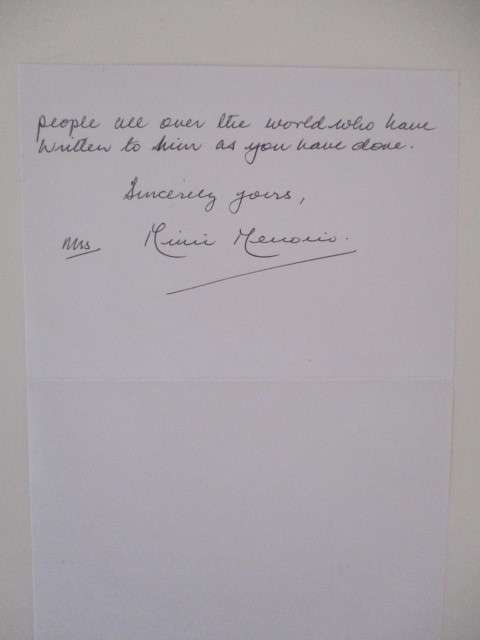 people all over the world who have
written to him as you have done.
Sincerely yours,
Mrs. Mimi